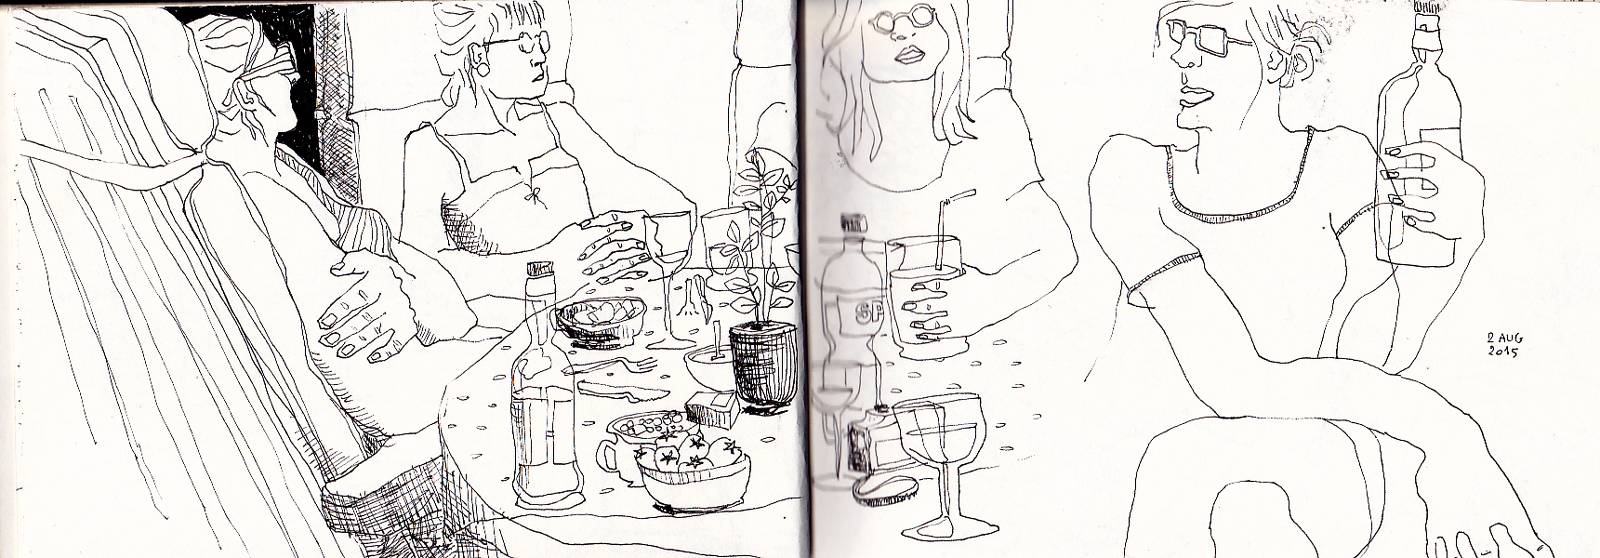 SP
2 AUG
2015